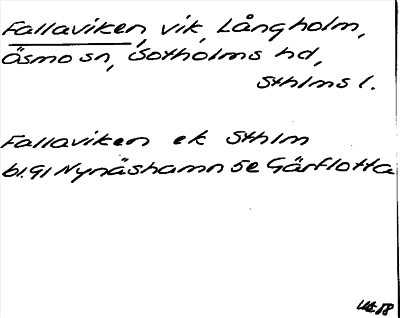 Fallaviken, vik, Långholm,
Ösmo sn, Sotholms hd,
Sthlms l.
Fallaviken ek Sthlm
bl. 91 Nynäshamn 5e Gärflotta